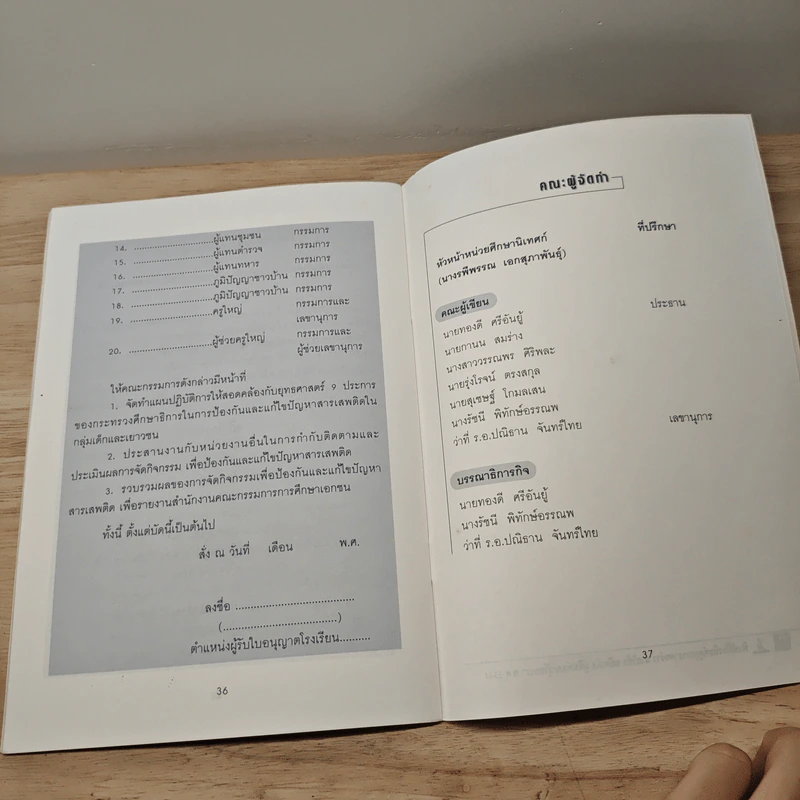 14. ..............................ผู้แทนชุมชน กรรมการ
15. ..............................ผู้แทนตำรวจ กรรมการ
16. ..............................ผู้แทนทหาร กรรมการ
17. ..............................ภูมิปัญญาชาวบ้าน กรรมการ
18. ..............................ภูมิปัญญาชาวบ้าน กรรมการ
19. ..............................ครูใหญ่ กรรมการและ
เลขานุการ
20. ..............................ผู้ช่วยครูใหญ่ กรรมการและ
ผู้ช่วยเลขานุการ
ให้คณะกรรมการดังกล่าวมีหน้าที่
1. จัดทำแผนปฏิบัติการให้สอดคล้องกับยุทธศาสตร์ 9 ประการ
ของกระทรวงศึกษาธิการในการป้องกันและแก้ไขปัญหาสารเสพติดใน
กลุ่มเด็กและเยาวชน
2. ประสานงานกับหน่วยงานอื่นในการกำกับติดตามและ
ประเมินผลการจัดกิจกรรม เพื่อป้องกันและแก้ไขปัญหาสารเสพติด
3. รวบรวมผลของการจัดกิจกรรมเพื่อป้องกันและแก้ไขปัญหา
สารเสพติด เพื่อรายงานสำนักงานคณะกรรมการการศึกษาเอกชน
ทั้งนี้ ตั้งแต่บัดนี้เป็นต้นไป
สั่ง ณ วันที่ เดือน พ.ศ.
ลงชื่อ ........................................
(......................................)
ตำแหน่งผู้รับใบอนุญาตโรงเรียน..........
36
คณะผู้จัดทำ
หัวหน้าหน่วยศึกษานิเทศก์ ที่ปรึกษา
(นางรพีพรรณ เอกสุภาพันธุ์)
คณะผู้เขียน
นายทองดี ศรีอันยู้ ประธาน
นายกานน สมร่าง
นางสาววรรณพร ศิริพละ
นายรุ่งโรจน์ ตรงสกุล
นายสุเชษฐ์ โกมลเสน
นางรัชนี พิทักษ์อรรณพ
ว่าที่ ร.อ.ปณิธาน จันทร์ไทย เลขานุการ
บรรณาธิการกิจ
นายทองดี ศรีอันยู้
นางรัชนี พิทักษ์อรรณพ
ว่าที่ ร.อ.ปณิธาน จันทร์ไทย
37